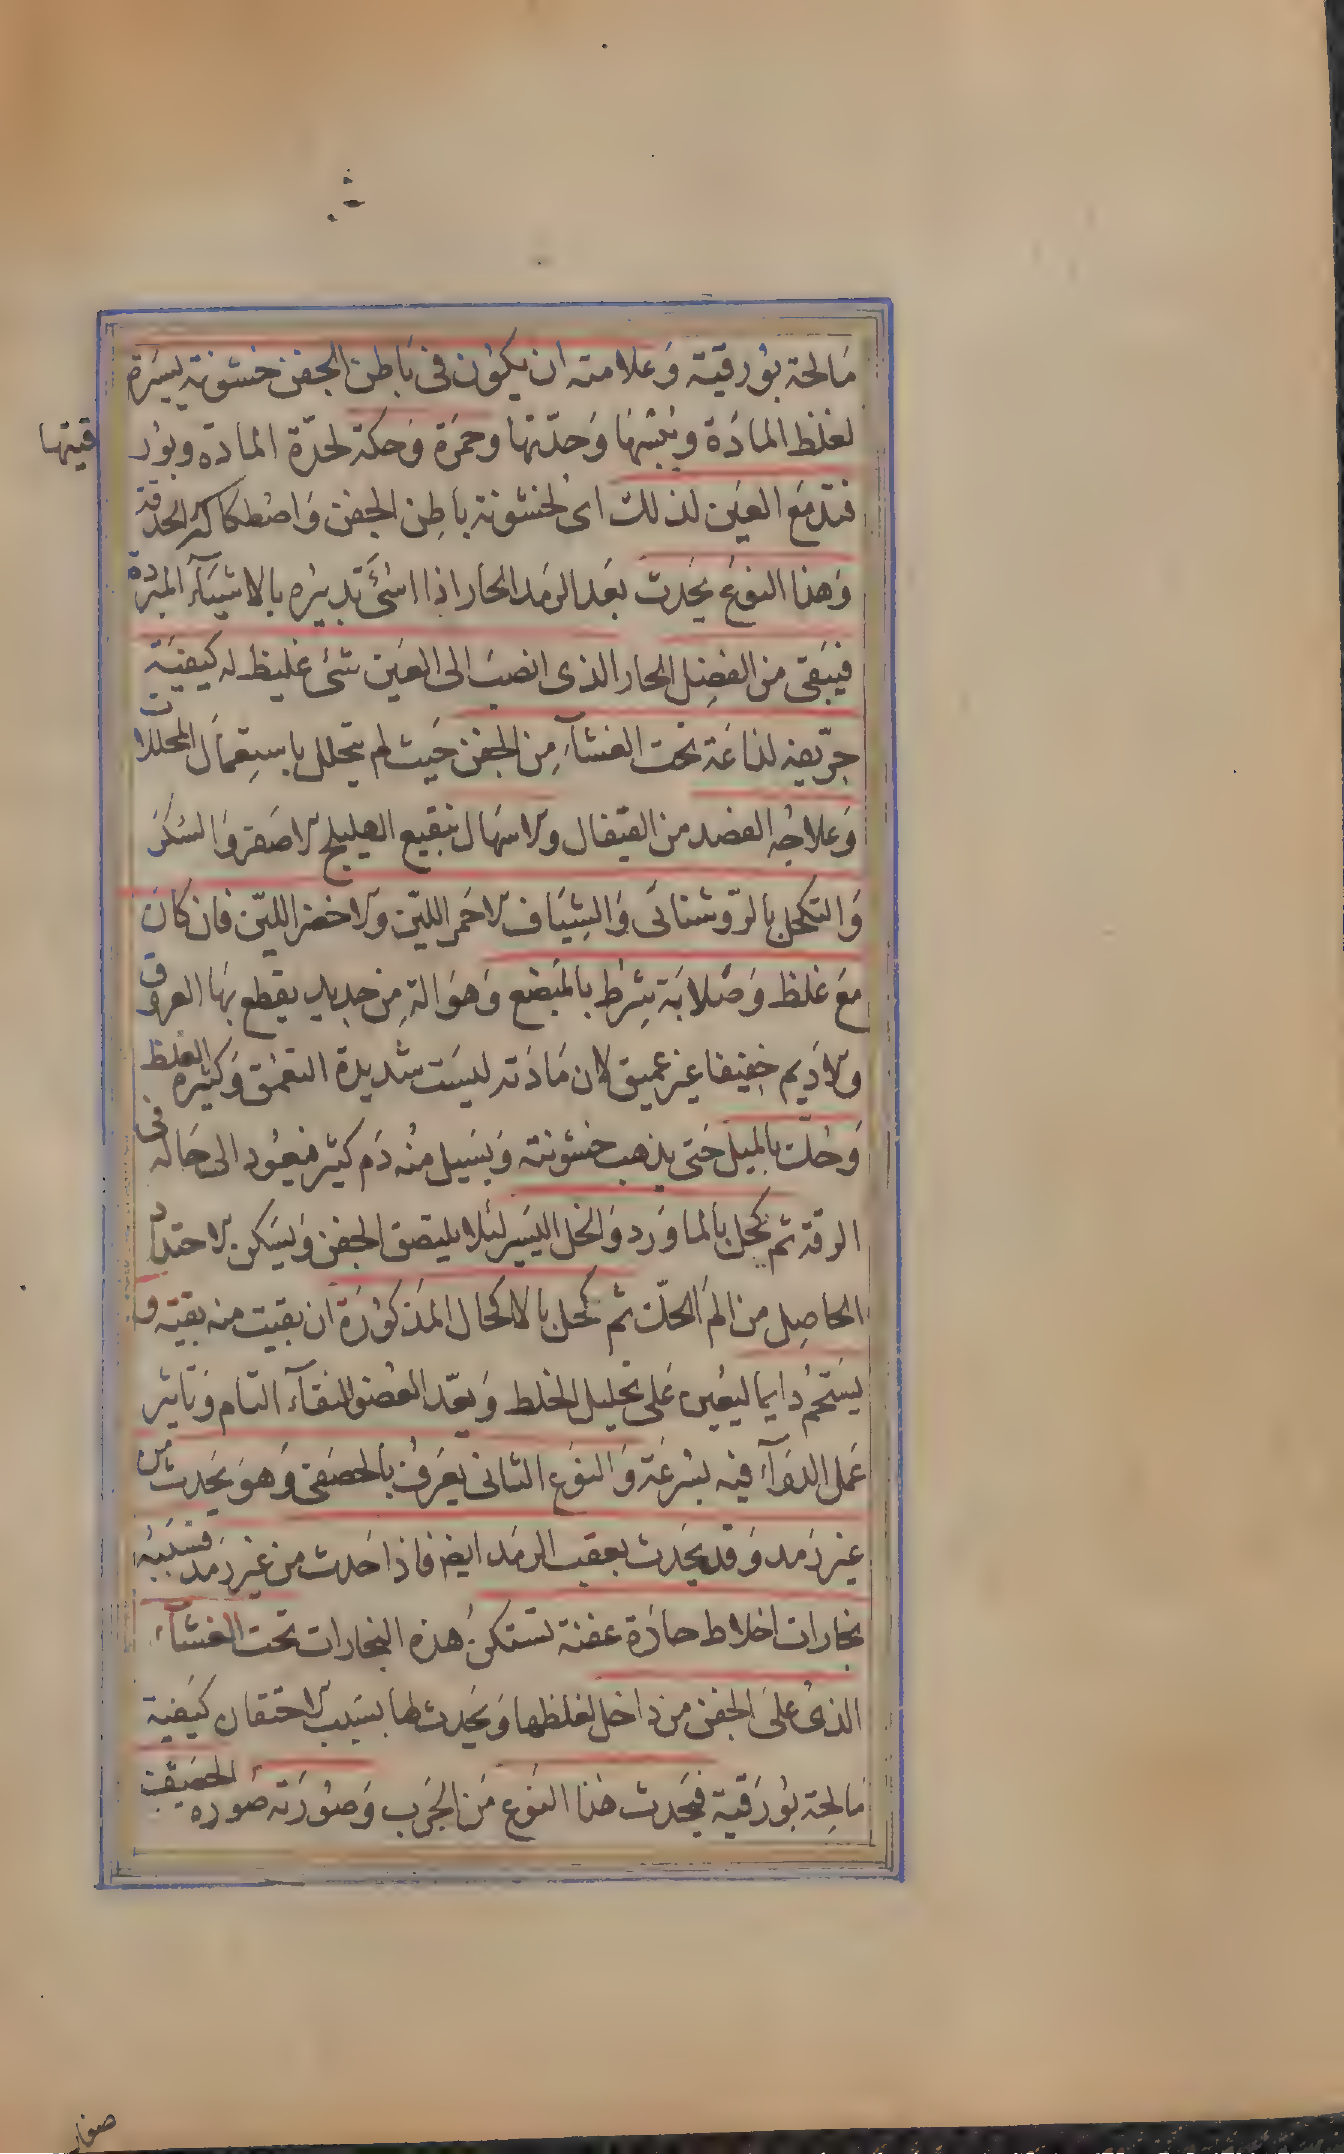 مَالحة بورقية وَعلامته ان يكون فى بَاطن الجفن خشونة يسيَرة
لغلظ المادَة ويُبسْهَا وَحدّتها وحمَرة وَحكة لحدّة المادّة وبورقيتها
فتدمَع العيَن لذلك اى لخشونة باطِن الجفن وَاصْطكاكه الحدقة
وَهذا النوعُ يحَدث بعَد الرمَد الحار اذا اسْئ تدبيرُه بالاشيَآء المبرّدة
فيَبقى من الفضِل الحار الذى انصبَ الى العيَن شئ غليظ له كيفيَة
حرّيفه لذاعَة تحت الغشآء مِن الجفن حَيث لم يتحلل باسِتعمَال المحللات
وَعلاجُه الفصد من القيفال والاسهَال بنقيع الهليلج الاصَفر وَالسُكرَ
وَالتكحل بالرّوشنائى وَالشِيَاف الاحَمر الليّن والاخضر الليّن فان كانَ
معَ غلظ وَصَلابَة يشِرَط بالمبَضع وَهوَ الة مِن حديد يقطع بهَا العروق
والادَيم خفيفا غير عميق لان مَادَته ليسَت شديدة التعمّق وَكثيرة الغلظ
وَحُكّ بالميل حَتى يذهب خشونته وَيَسيل منُه دَم كثير فيعوُد الى حَاله فى
الرقة ثم يكحل بالماوَرد وَالخل اليسَير لئلا يلتصق الجفن وَليَسكن الاحتداد
الحاصِل من المَ الحكّ ثم يكحل بالاكحال المذكورَة ان بقيت منه بقية و
يسَتحمُ دايما ليعُين عَلى تحليل الخلط وَيعّد العُضو للنقآء التام وَتاثير
عمَل الدوَآء فيه بسُرعَة وَالنوَع الثانى يعَرفُ بالحصَفى وَهوَ يحَدث من
غير رَمد وَقد يحَدث بعقب الرمَد ايض فاذا حَدث من غير رَمَد فسَبَبُه
بخارات اخلاط حادّة عفنة تستكنُ هذه البخارات تحت الغشآء
الذىُ علىَ الجفن من داخل لغلظها وَيحَدث لها بسَبب الاحتقان كيَفية
مَالحِة بوُرَقية فيحَدث هذا النوَع مَن الجَرب وَصُورَته صَورة الحصَف